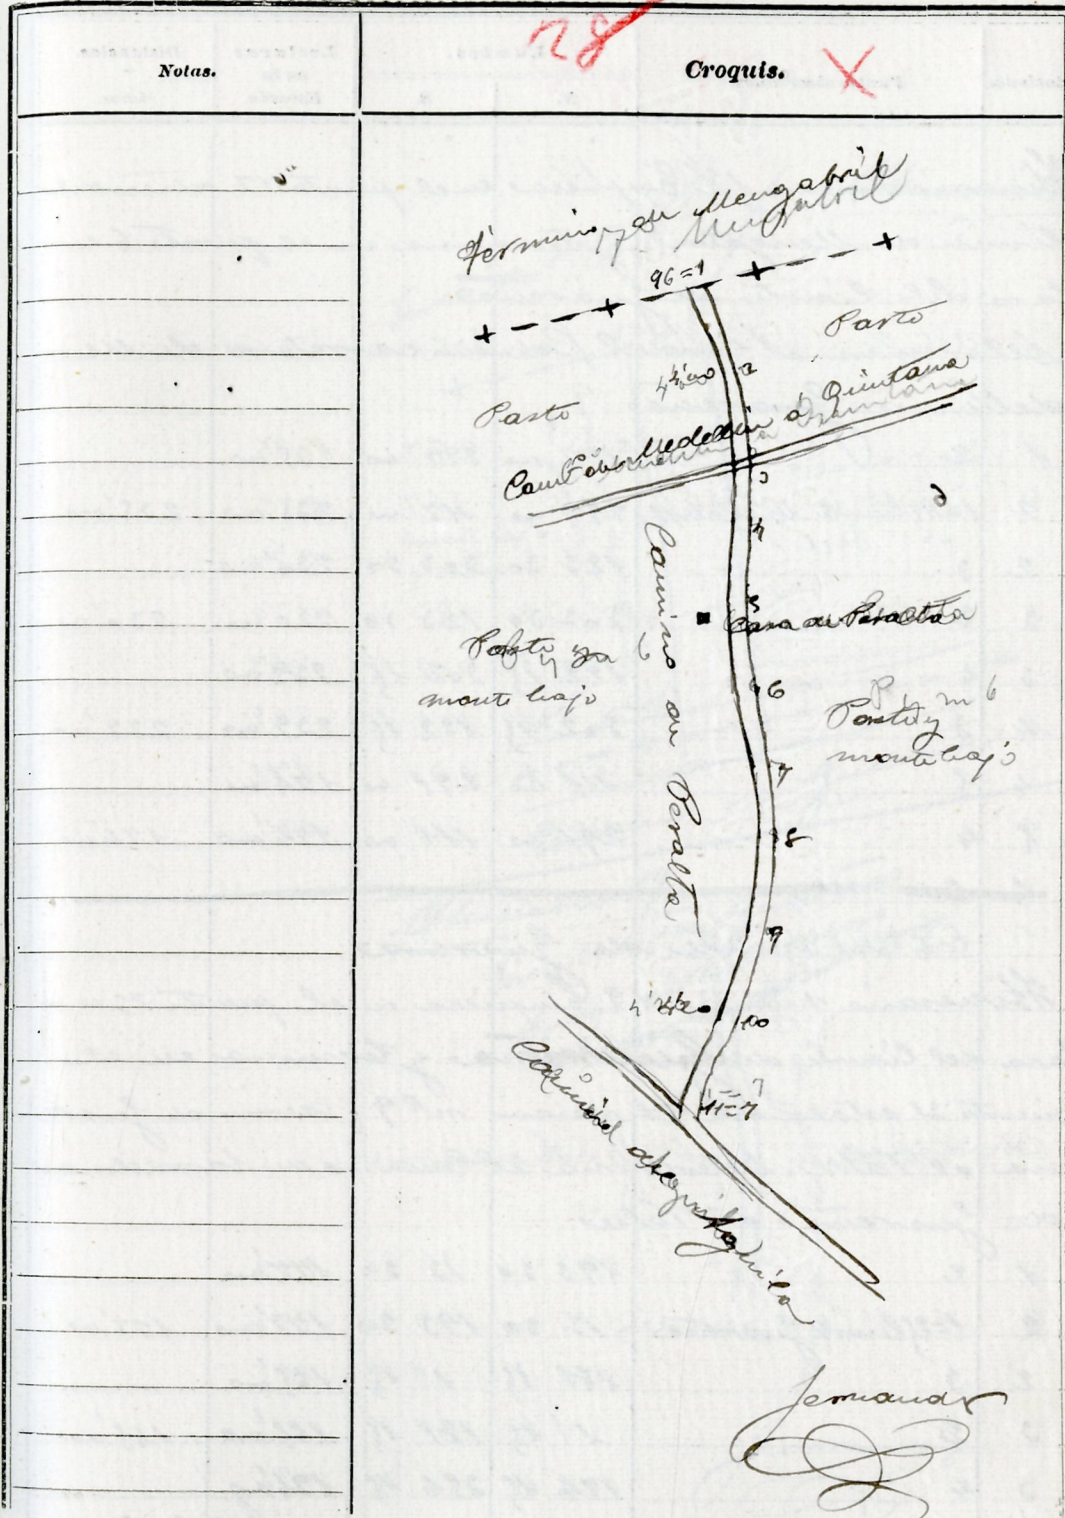 28
Notas.
Croquis.
X
Término de Mengabril
96=1
Pasto
2
Pasto
Camº de Medellin á Quintana
3
4
5
Casa de Peralta
Camino de Peralta
Pasto y
monte bajo
6
Pasto y
monte bajo
7
8
9
10
11=7
Fernandez